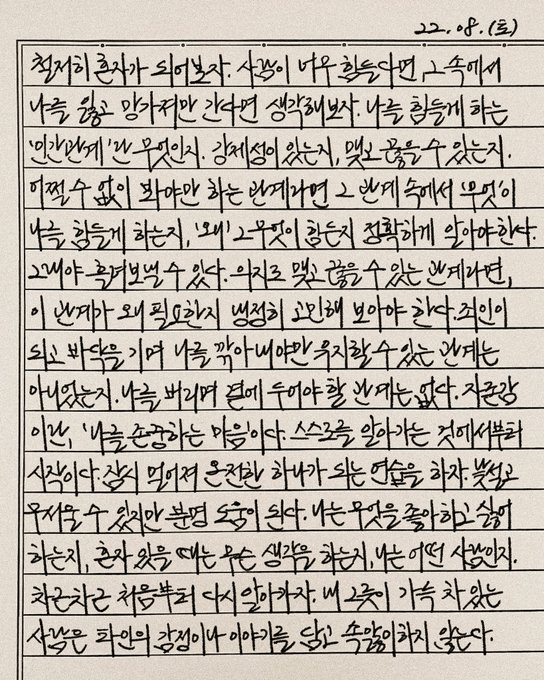 22.08.(토)
철저히 혼자가 되어보자. 사람이 너무 힘들다면, 그 속에서
나를 잃고 망가져만 간다면 생각해보자. 나를 힘들게 하는
'인간관계'란 무엇인지. 강제성이 있는지, 맺고 끊을 수 있는지.
어쩔 수 없이 봐야만 하는 관계라면 그 관계 속에서 '무엇'이
나를 힘들게 하는지, '왜' 그 무엇이 힘든지 정확하게 알아야 한다.
그래야 흘려보낼 수 있다. 의지로 맺고 끊을 수 있는 관계라면,
이 관계가 왜 필요한지 냉정히 고민해 보아야 한다. 죄인이
되고 바닥을 기며 나를 깎아내야만 유지할 수 있는 관계는
아니었는지. 나를 버리며 곁에 두어야 할 관계는 없다. 자존감
이란, '나를 존중하는 마음'이다. 스스로를 알아가는 것에서부터
시작이다. 잠시 멀어져 온전한 하나가 되는 연습을 하자. 낯설고
무서울 수 있지만 분명 도움이 된다. 나는 무엇을 좋아하고 싫어
하는지, 혼자 있을 때는 무슨 생각을 하는지, 나는 어떤 사람인지.
차근차근 처음부터 다시 알아가자. 내 그릇이 가득 차 있는
사람은 타인의 감정이나 이야기를 담고 속앓이하지 않는다.